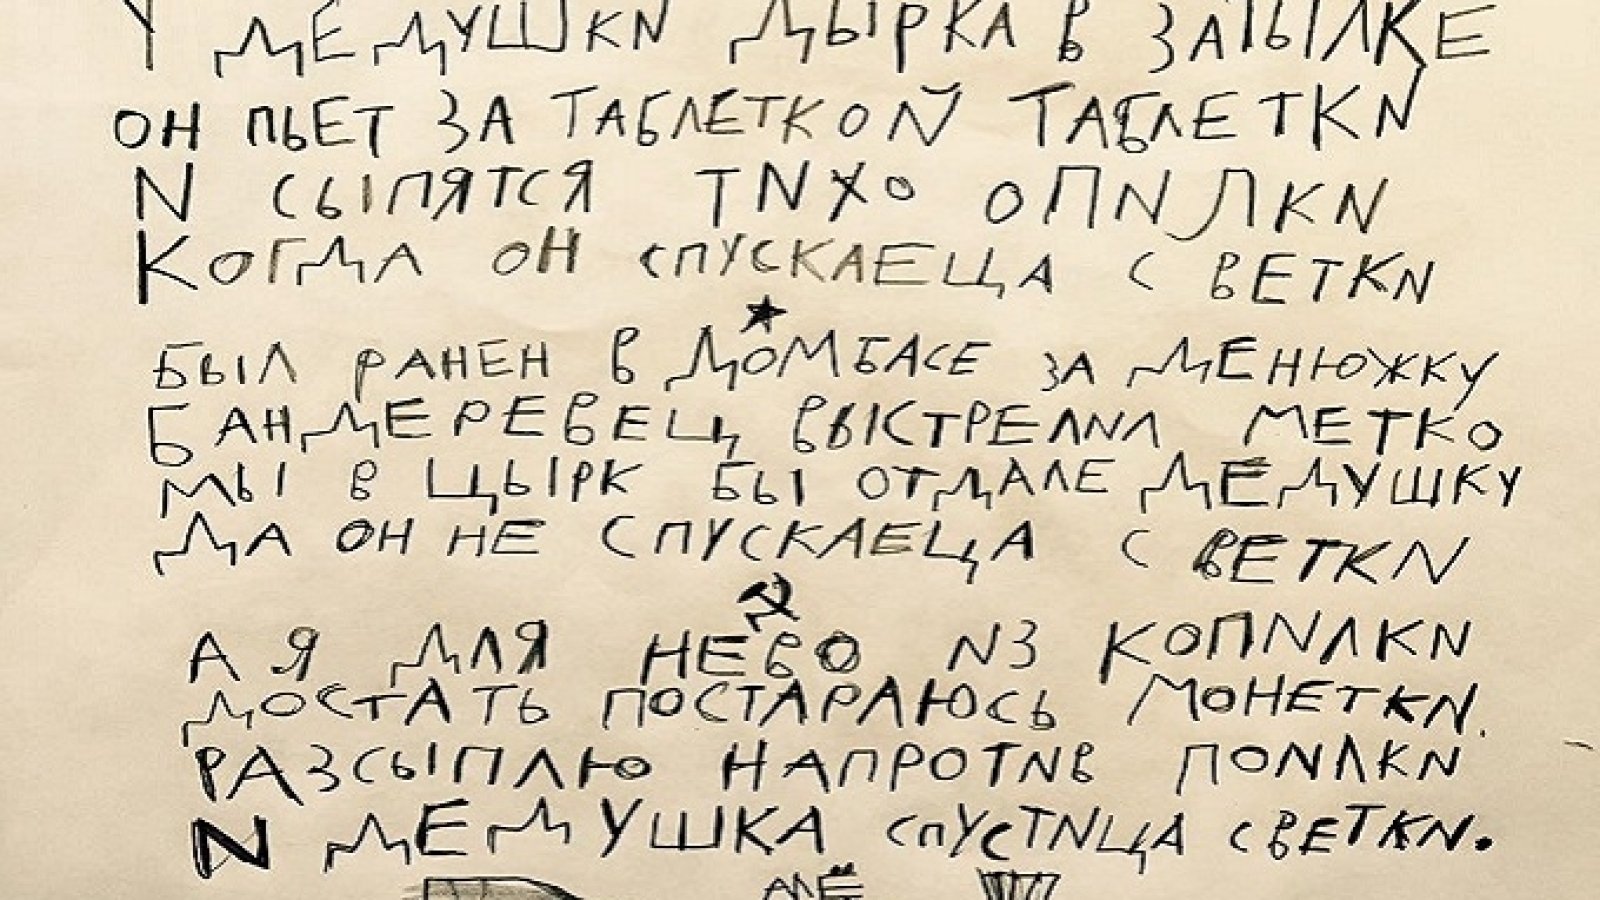 У ДЕДУШКИ ДЫРКА В ЗАТЫЛКЕ
ОН ПЬЕТ ЗА ТАБЛЕТКОЙ ТАБЛЕТКИ
И СЫПЯТСЯ ТИХО ОПИЛКИ
КОГДА ОН СПУСКАЕЦА С ВЕТКИ
БЫЛ РАНЕН В ДОМБАСЕ ЗА ДЕНЮЖКУ
БАНДЕРЕВЕЦ ВЫСТРЕЛИЛ МЕТКО
МЫ В ЦЫРК БЫ ОТДАЛЕ ДЕДУШКУ
ДА ОН НЕ СПУСКАЕЦА С ВЕТКИ
А Я ДЛЯ НЕВО ИЗ КОПИЛКИ
ДОСТАТЬ ПОСТАРАЮСЬ МОНЕТКИ.
РАЗСЫПЛЮ НАПРОТИВ ПОИЛКИ
И ДЕДУШКА СПУСТИЦА С ВЕТКИ.